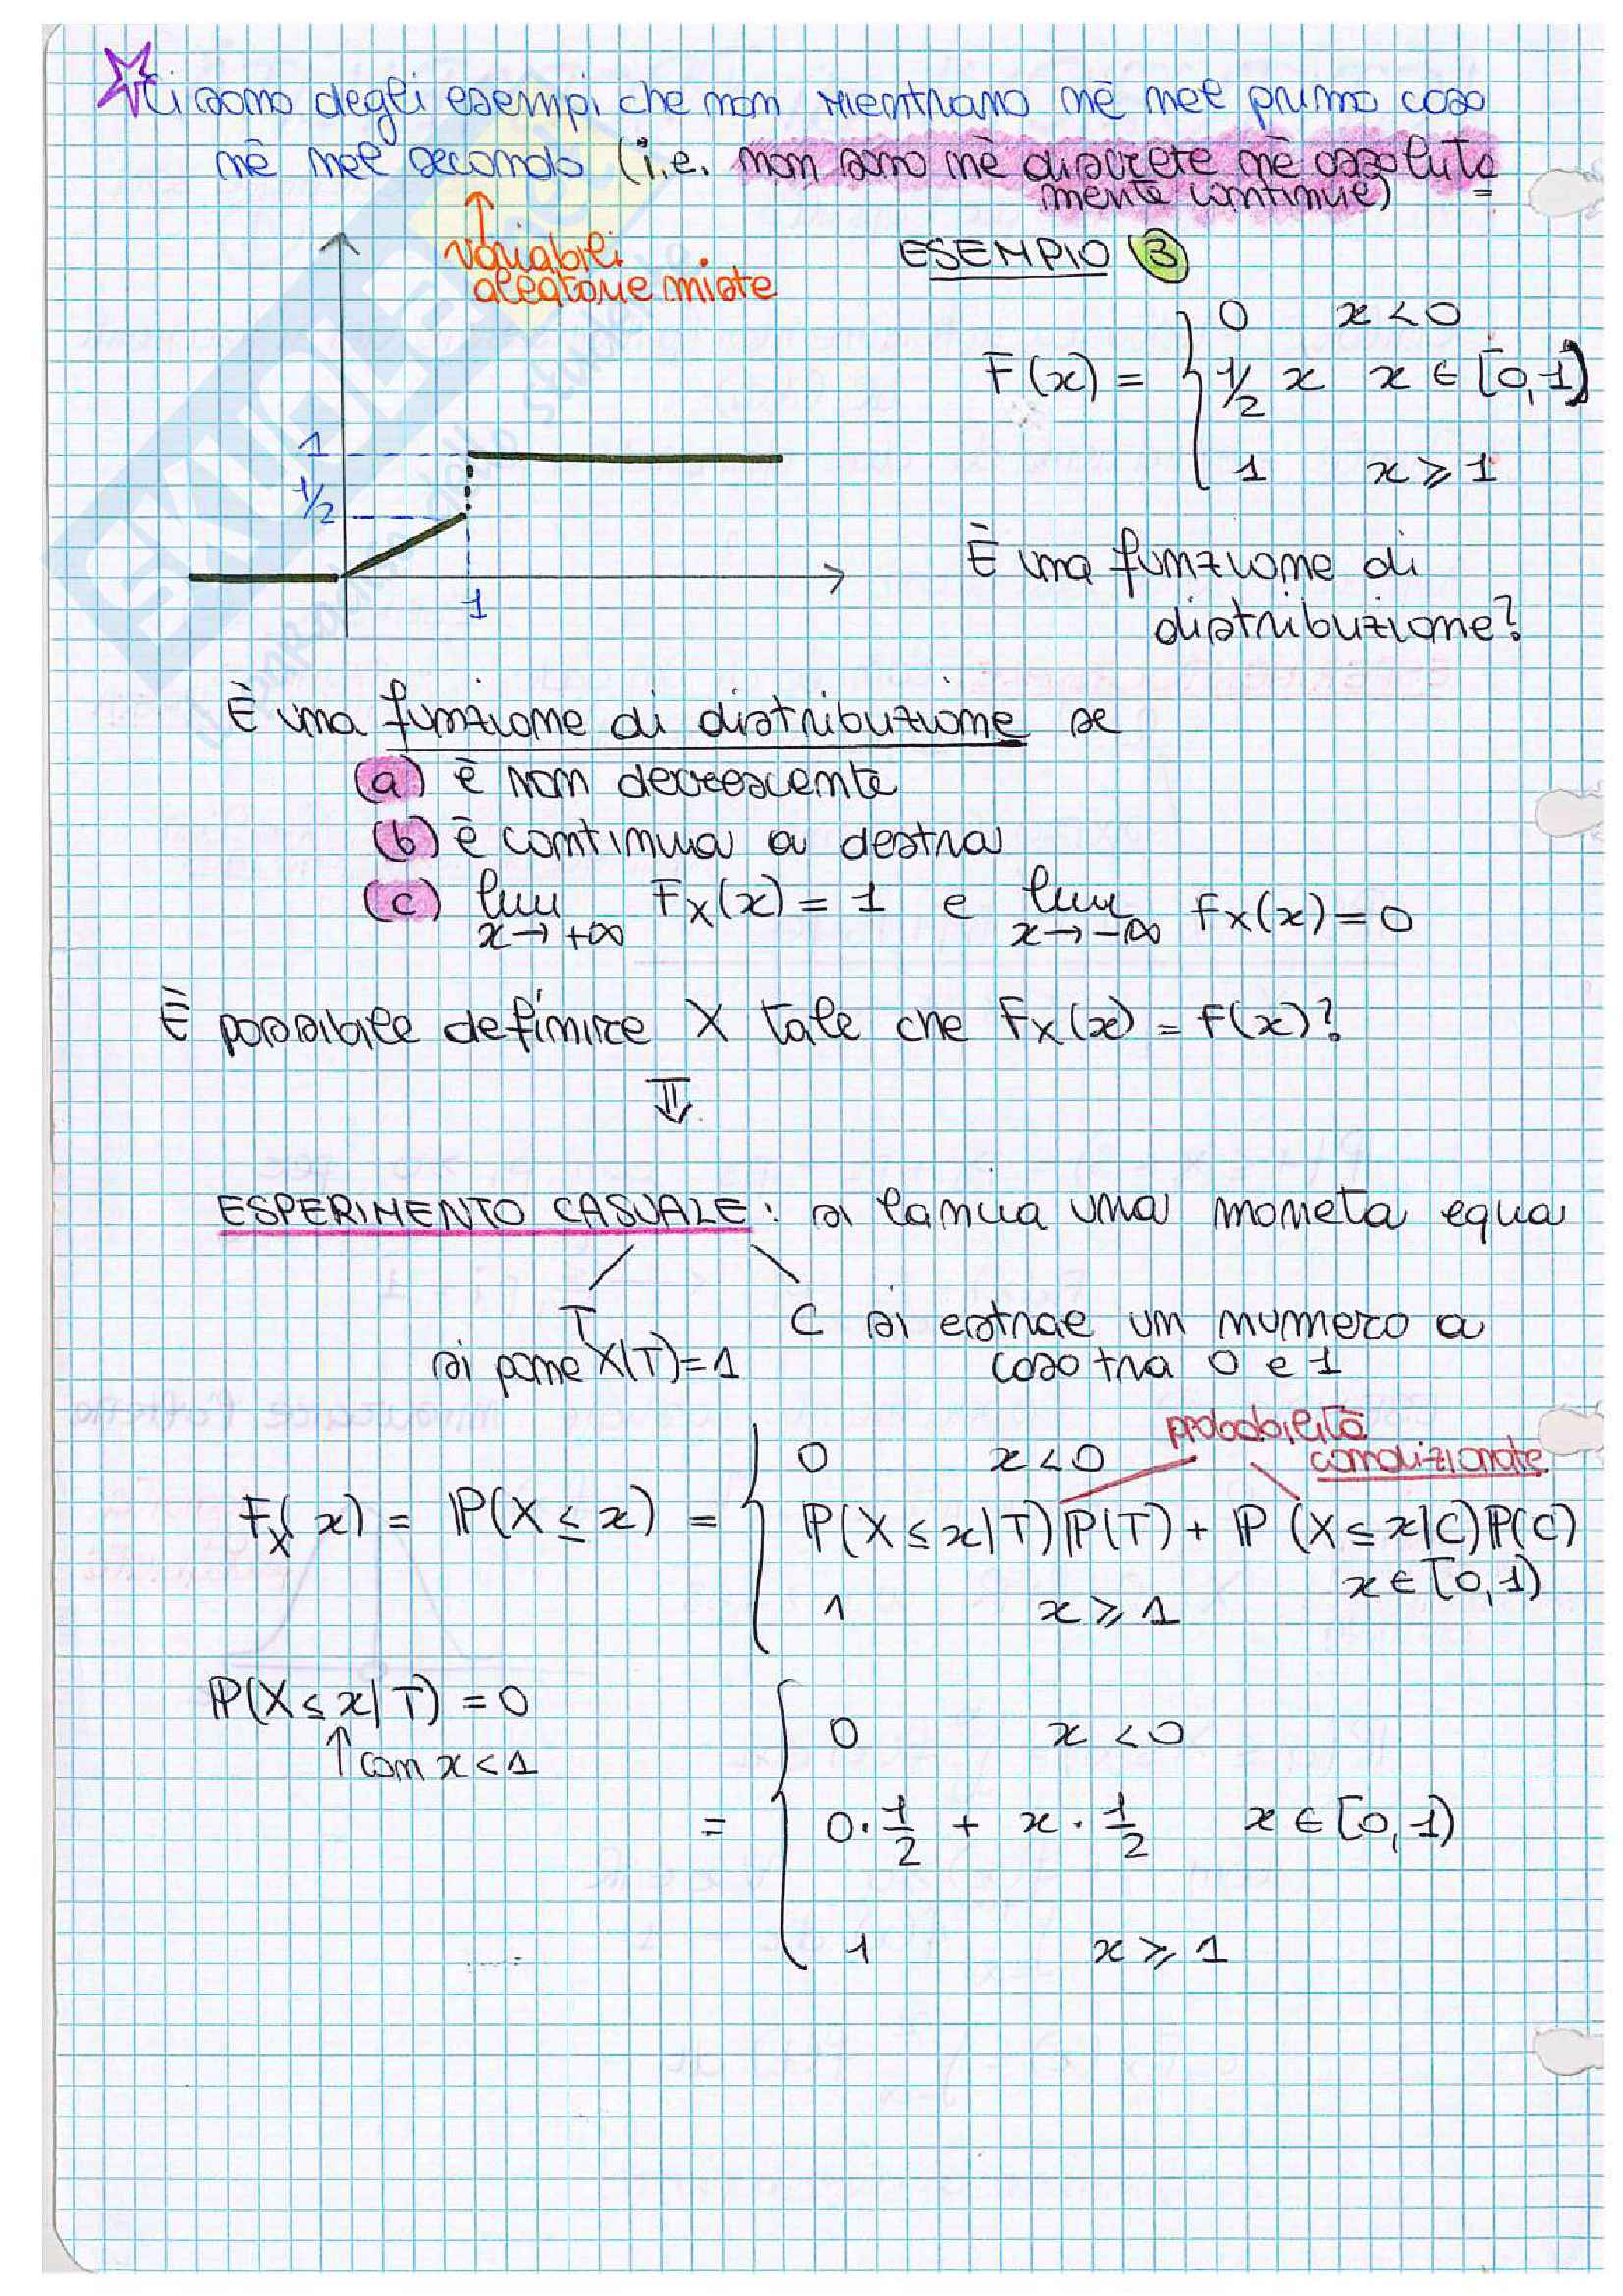 Ci sono degli esempi che non rientrano nè nel primo caso
nè nel secondo (i.e. non sono nè discrete nè assoluta=
mente continue)
variabili
aleatorie miste
ESEMPIO 3
F(x) = { 0 x < 0
1/2 x x ∈ [0,1)
1 x ⩾ 1
1
1/2
1
È una funzione di
distribuzione?
È una funzione di distribuzione se
(a) è non decrescente
(b) è continua a destra
(c) lim x→+∞ Fx(x) = 1 e lim x→-∞ Fx(x) = 0
È possibile definire X tale che Fx(x) = F(x)?
⇓
ESPERIMENTO CASUALE: si lancia una moneta equa
T
si pone X(T)=1
C si estrae un numero a
caso tra 0 e 1
probabilità
condizionate
Fx(x) = ℙ(X ≤ x) = { 0 x < 0
ℙ(X ≤ x|T) ℙ(T) + ℙ(X ≤ x|C) ℙ(C)
x ∈ [0,1)
1 x ⩾ 1
ℙ(X ≤ x|T) = 0
↑ con x < 1
= { 0 x < 0
0 · 1/2 + x · 1/2 x ∈ [0,1)
1 x ⩾ 1